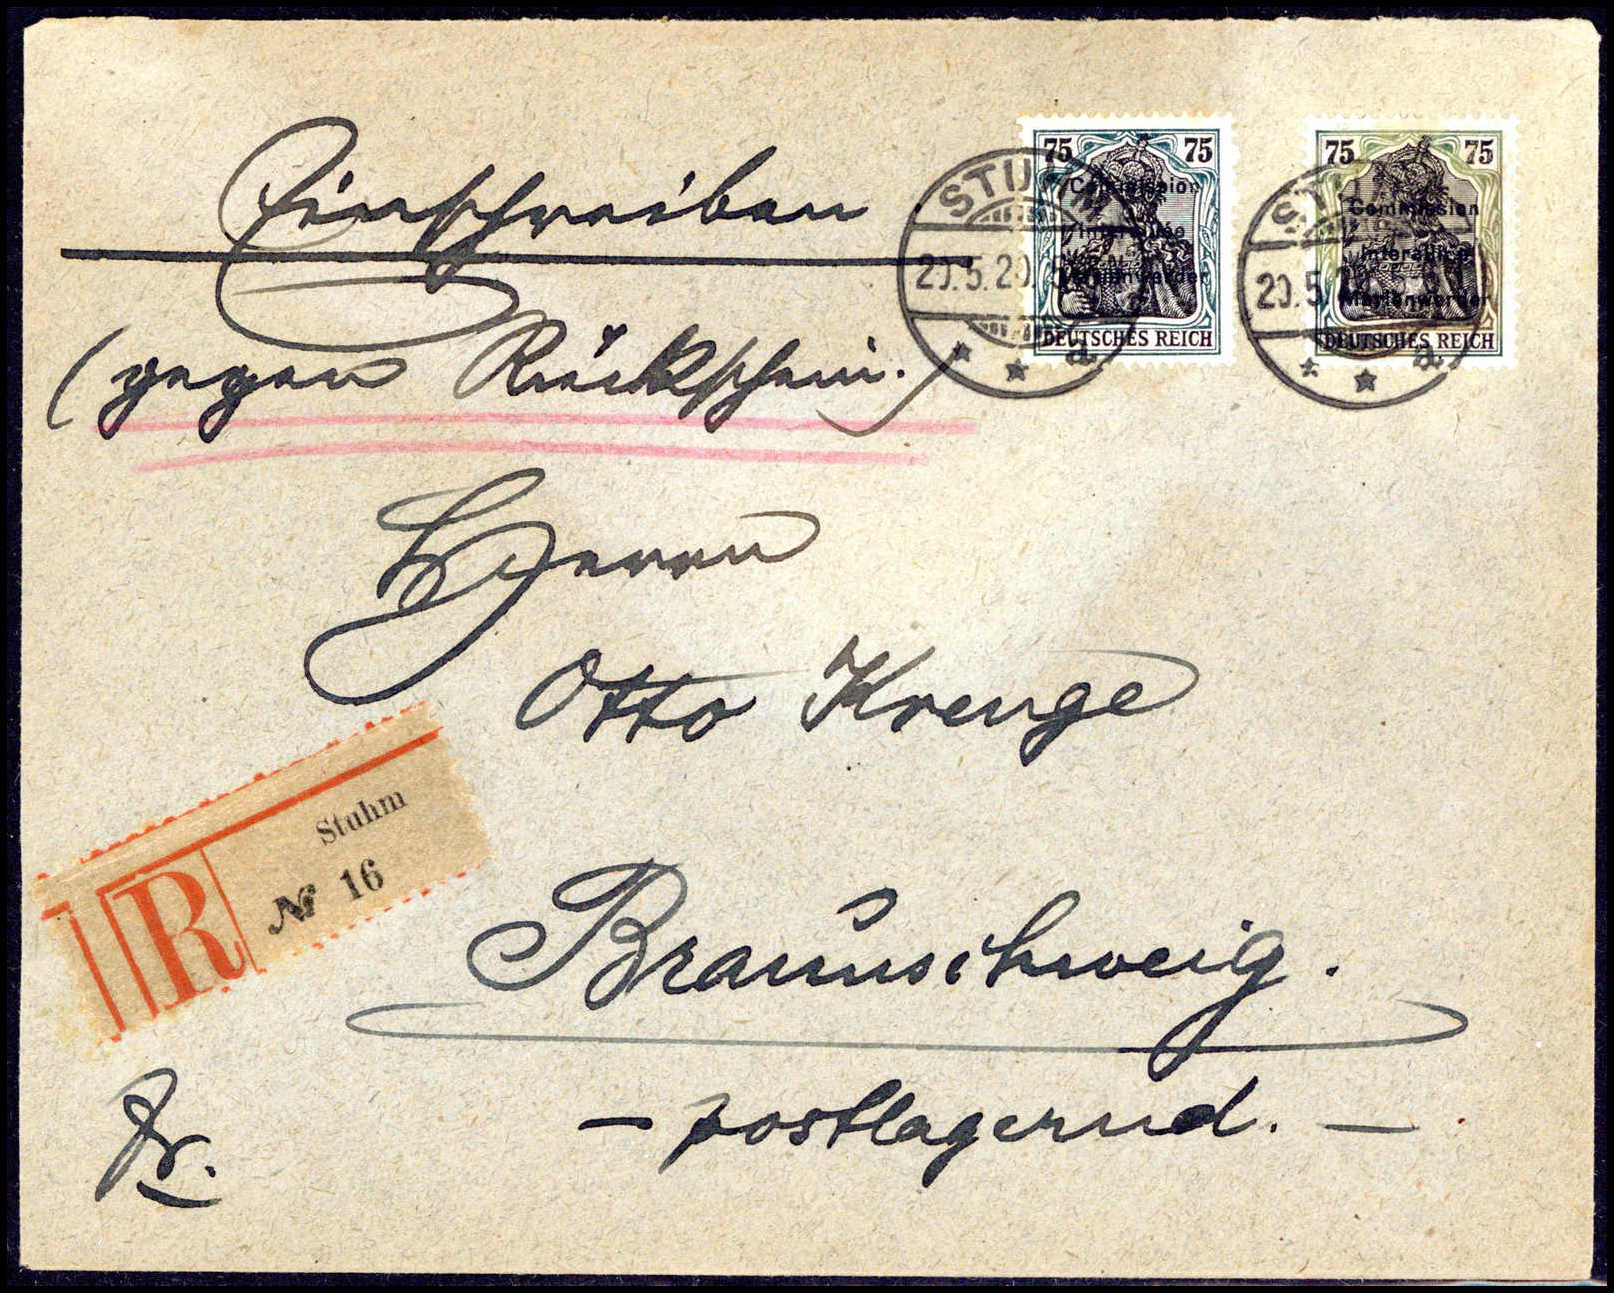 Einschreiben
(gegen Rückschein.)
75 75
Commission
Interalliée
Marienwerder
DEUTSCHES REICH
75 75
Commission
Interalliée
Marienwerder
DEUTSCHES REICH
STUHM
20.5.20.
a
20.5.
a
Herrn
Otto Krenge
Stuhm
№ 16
R
Braunschweig.
- postlagernd. -
Fr.